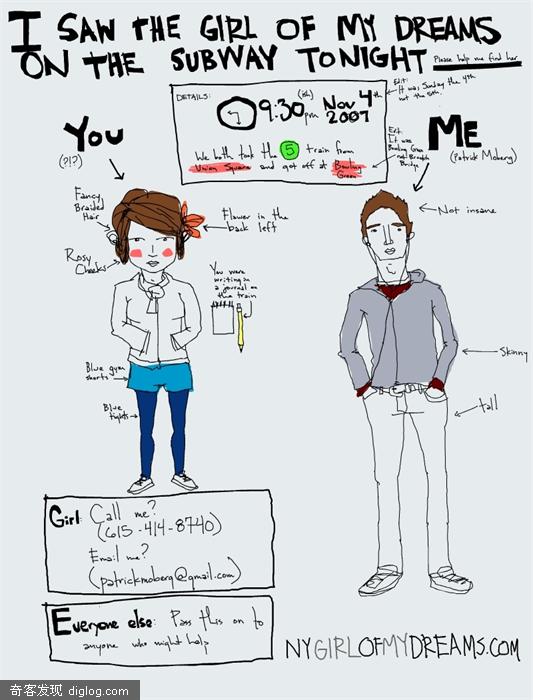 I SAW THE GIRL OF MY DREAMS
ON THE SUBWAY TONIGHT
Please help me find her
DETAILS:
9:30 pm (ish) Nov 4th
2007
Edit:
It was Sunday the 4th
not the 5th.
We both took the 5 train from
Union Square and got off at Bowling
Green
Edit:
It was
Bowling Green
not Brooklyn
Bridge
YOU
(?!?)
ME
(Patrick Moberg)
Fancy
Braided
Hair
Flower in the
back left
Rosy
Cheeks
Not insane
You were
writing in
a journal on
the train
Blue gym
shorts
Skinny
Blue
tights
tall
Girl: Call me?
(615-414-8740)
Email me?
(patrickmoberg@gmail.com)
Everyone else: Pass this on to
anyone who might help
NYGIRLOFMYDREAMS.COM
奇客发现 diglog.com